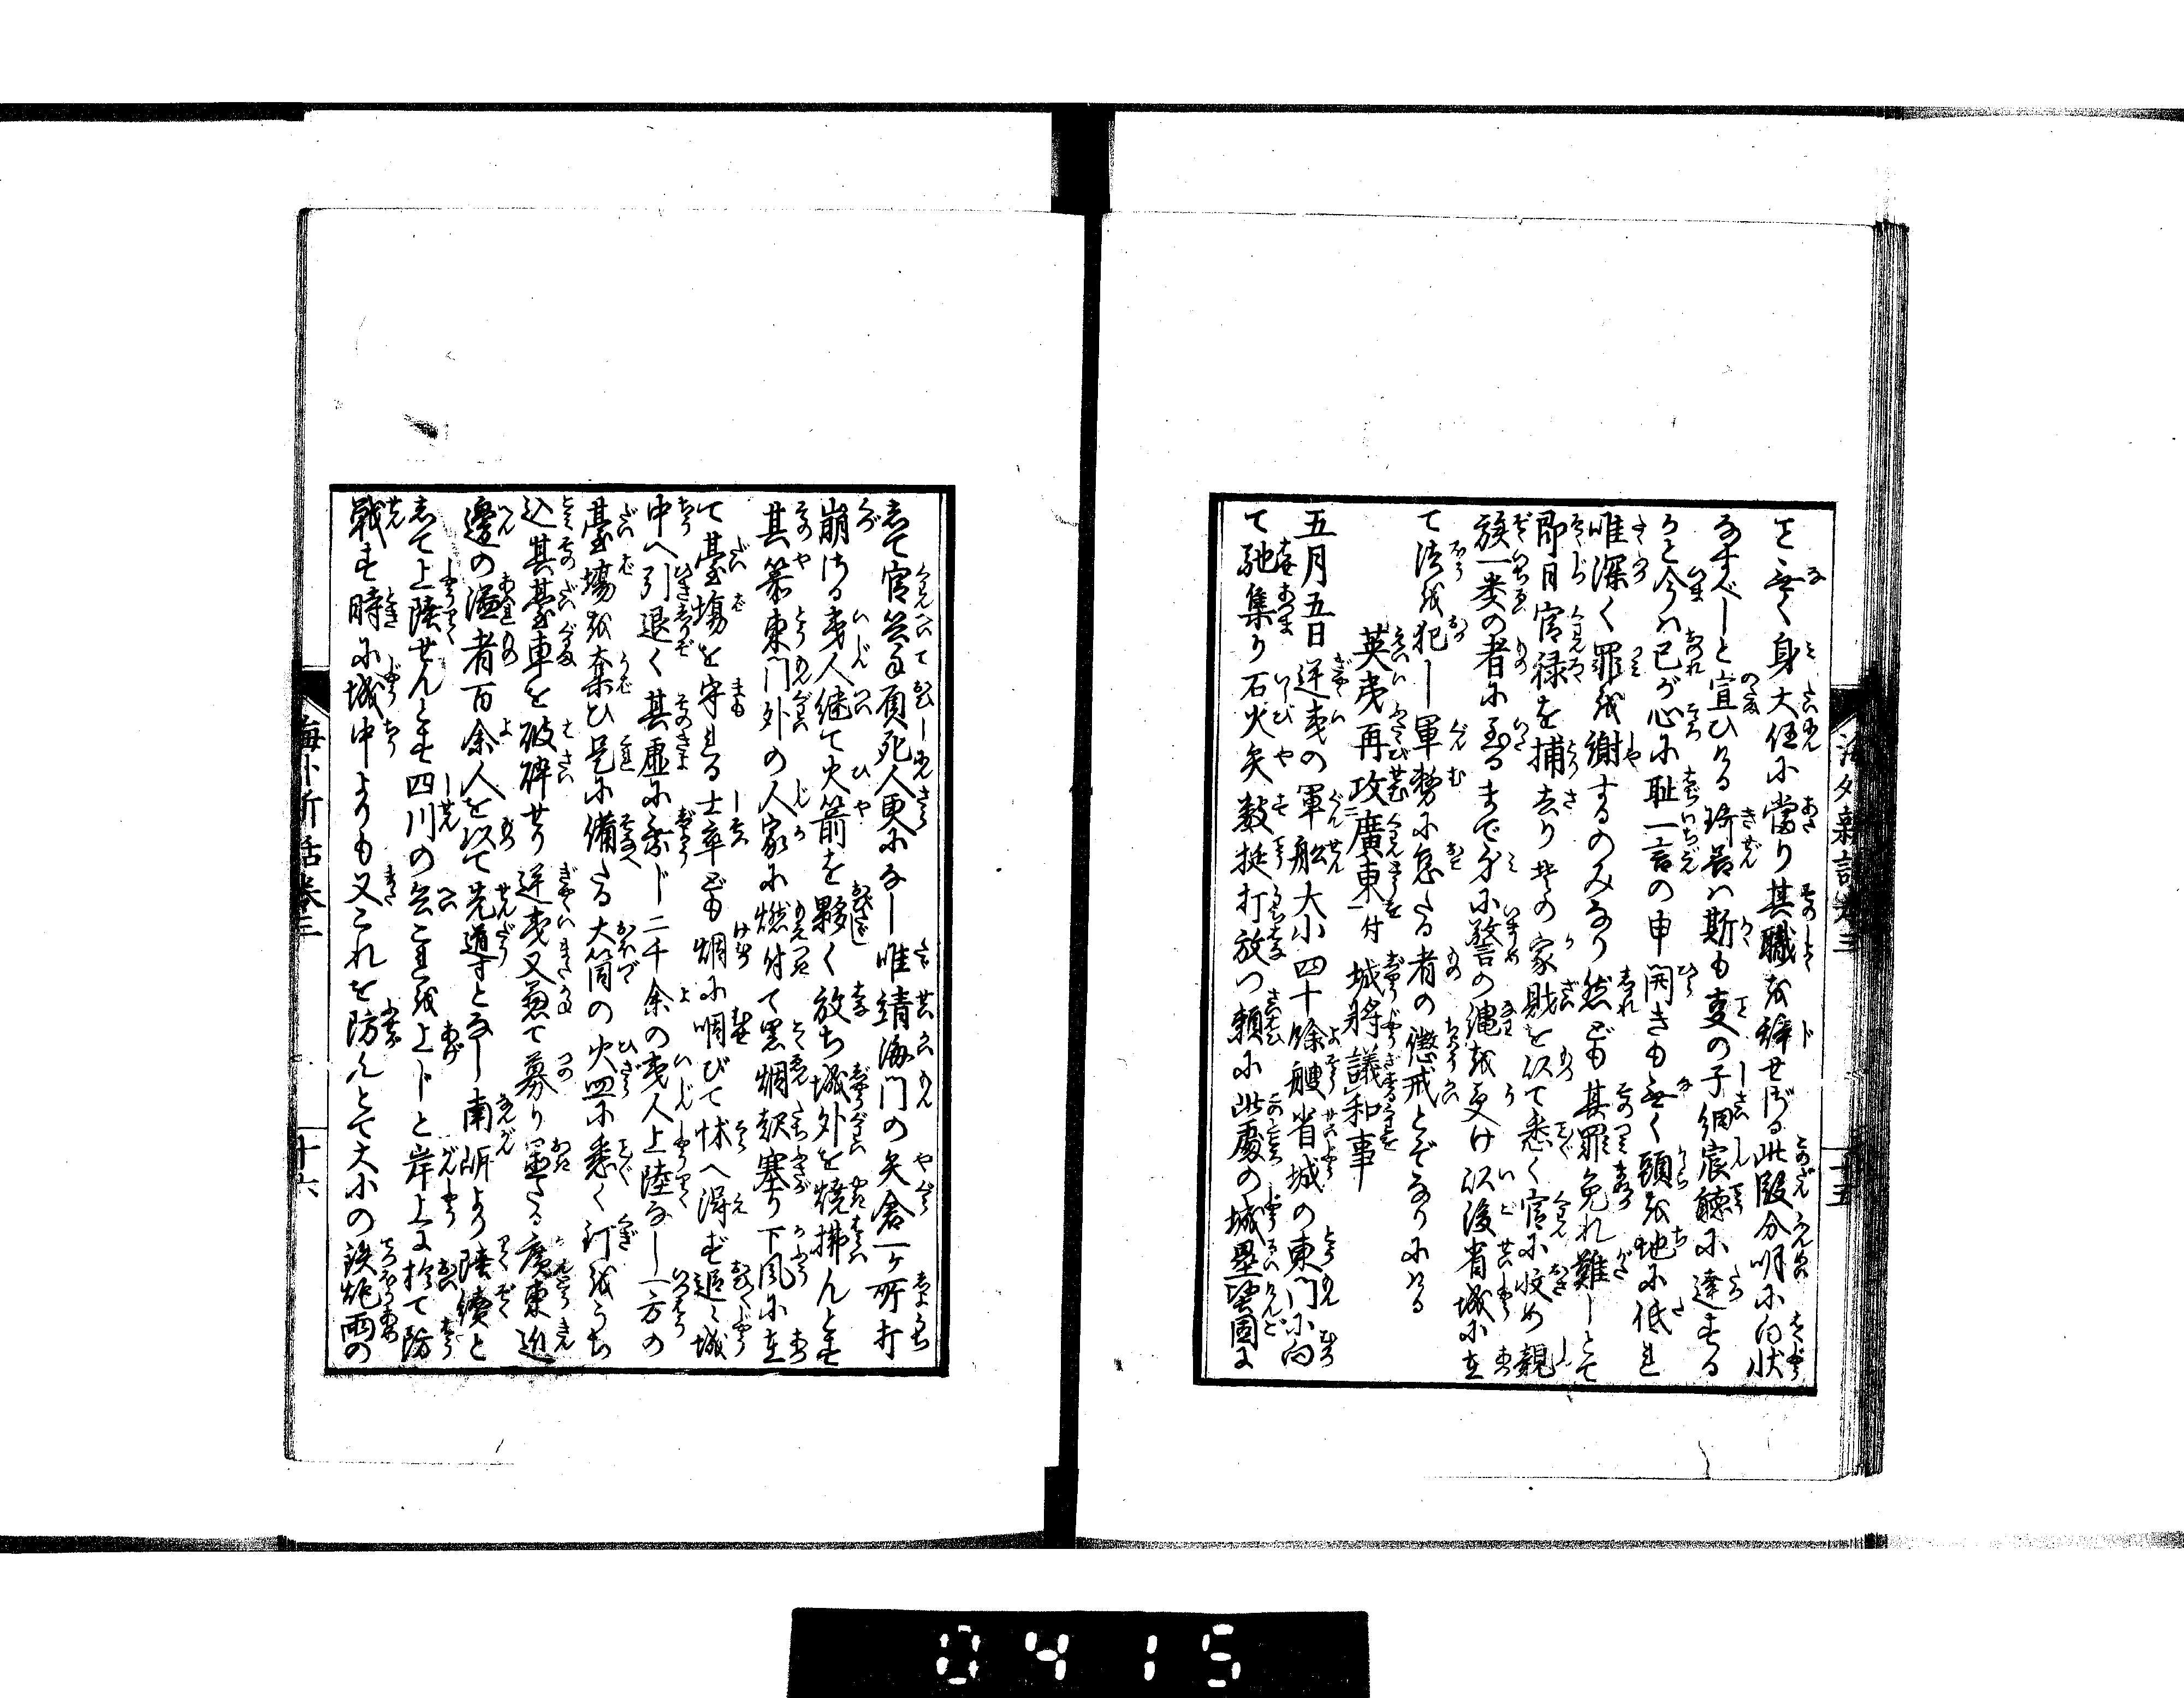 と無く身大任に當り其職を辞せざる此段分明に白状
なすべしと宣ひける琦善は斯も事の子細宸聴に達する
うへ今は己が心に恥一言の申開きも無く頭を地に低れ
唯深く罪を謝するのみなり然ども其罪免れ難しとて
即日官禄を捕去り其の家財を以て悉く官に收め親
族一類の者に至るまで分に警の縄を受け以後省城に在
て法を犯し軍務に怠たる者の懲戒とぞなりにける
英夷再攻廣東付城將議和事
五月五日逆夷の軍舩大小四十餘艘省城の東門に向
て馳集り石火矢数挺打放つ頼に此處の城塁堅固に
海外新話巻三
十五
して官兵手負死人更になし唯靖海門の矢倉一ヶ所打
崩ける夷人継て火箭を夥く放ち城外を焼拂んとす
其禁東門外の人家に燃付て黒烟塞り下風に在
て臺場を守れる士卒ども烟に咽びて怺へ得ず追々城
中へ引退く其虚に乗じ二千余の夷人上陸なし一方の
臺場を奪ひ是に備たる大筒の火皿に悉く釘をうち
込其臺車を破碎せり逆夷又兼て募り置たる廣東近
邊の溢者百余人を以て先導となし南岍より陸續と
して上陸せんとす四川の兵これを上じと岸上に於て防
戰す時に城中よりも又これを防んとて大小の鉄炮雨の
海外新話巻三
十六
0415